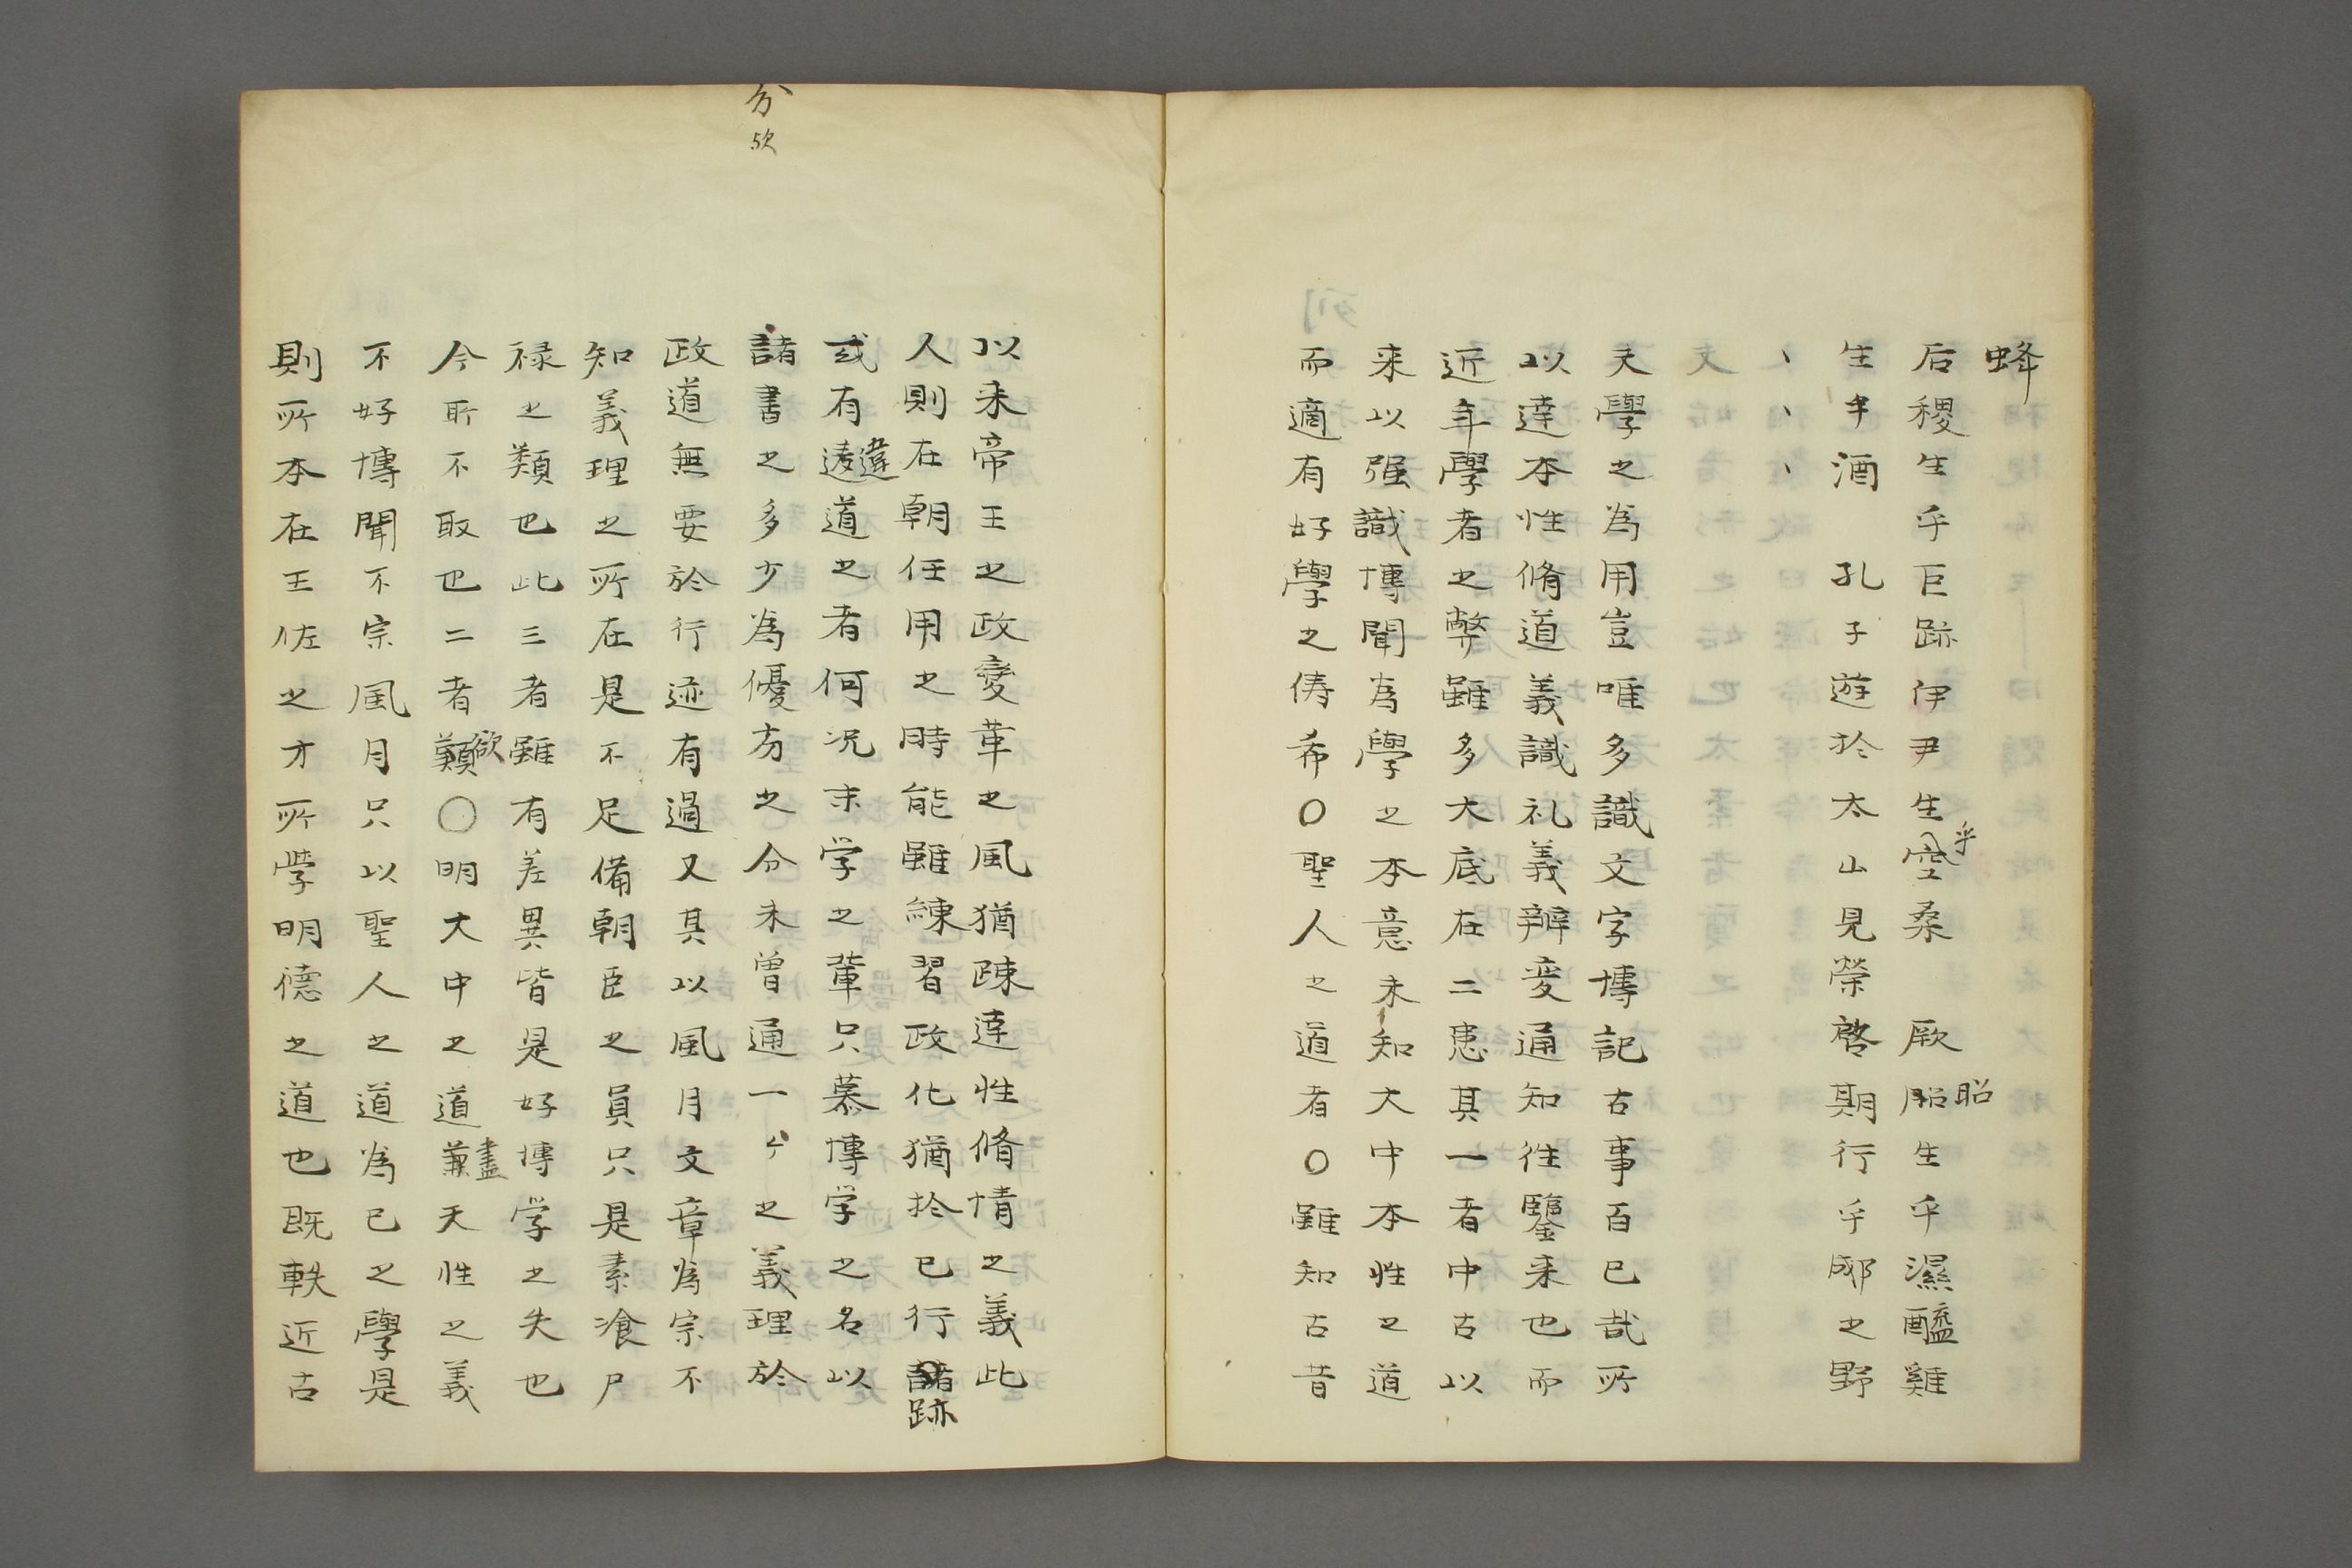 蜂
后稷生乎巨跡伊尹生乎空桑　厥昭生乎濕醯雞
生乎酒　孔子遊於太山見榮啓期行乎郕之野
、、、
夫學之為用豈唯多識文字博記古事百已哉所
以達本性脩道義識礼義辨変通知往鑒来也而
近年學者之弊雖多大底在二患其一者中古以
来以强識博聞為學之本意未知大中本性之道
而適有好學之儔希〇聖人之道者〇雖知古昔
以来帝王之政變革之風猶疎達性脩情之義此
人則在朝任用之時能雖練習政化猶於已行諸跡
或有逶違道之者何況末学之輩只慕博学之名以
分欤
諸書之多少為優劣之分未曽通一々之義理於
政道無要於行迹有過又其以風月文章為宗不
知義理之所在是不足備朝臣之員只是素飡尸
禄之類也此三者雖有差異皆是好博学之失也
今所不取也二者欲〇明大中之道盡天性之義
不好博聞不宗風月只以聖人之道為已之學是
則所本在王佐之才所学明德之道也既軼近古